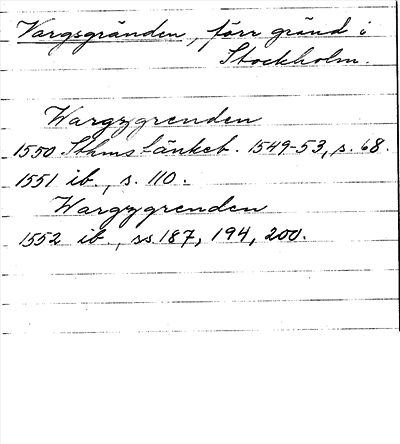 Vargsgränden, förr gränd i
Stockholm.
Wargzgrenden
1550 Sthms tänkeb. 1549-53, s. 68.
1551 ib., s. 110.
Wargzgrenden
1552 ib., ss. 187, 194, 200.